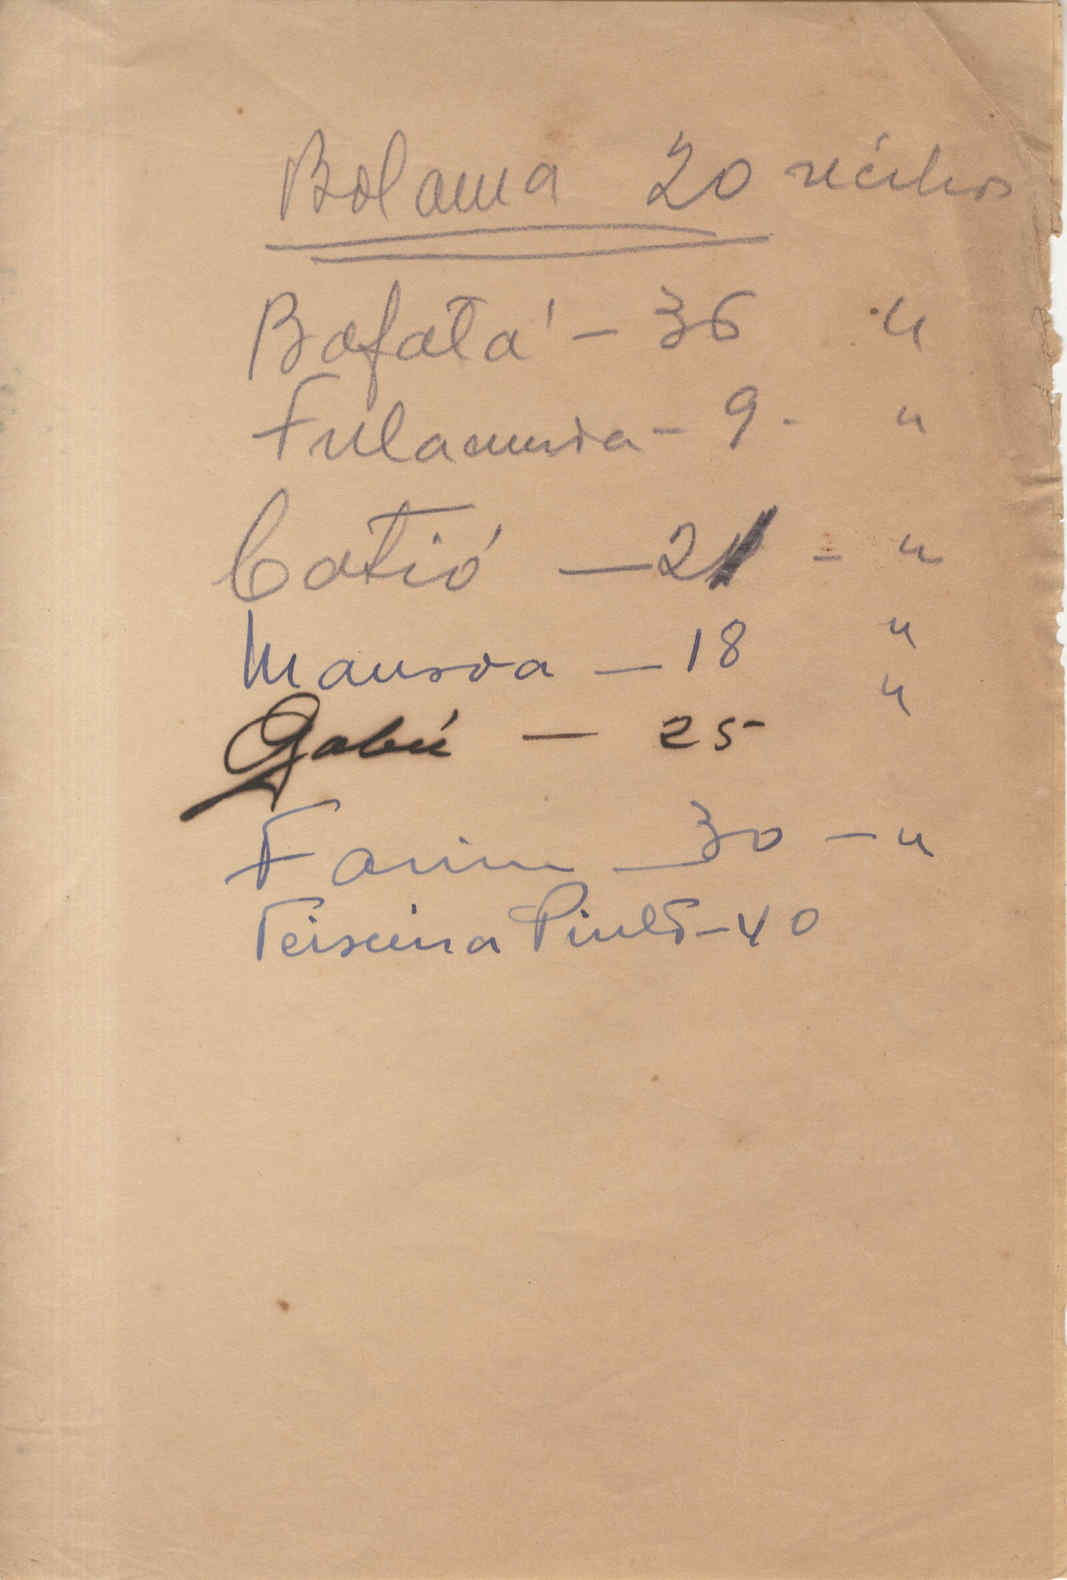 Bolama 20 recibos
Bafatá - 36 "
Fulacunda - 9 - "
Catió - 21 - "
Mansoa - 18 "
Gabú - 25 "
Farim - 30 - "
Teixeira Pinto - 40